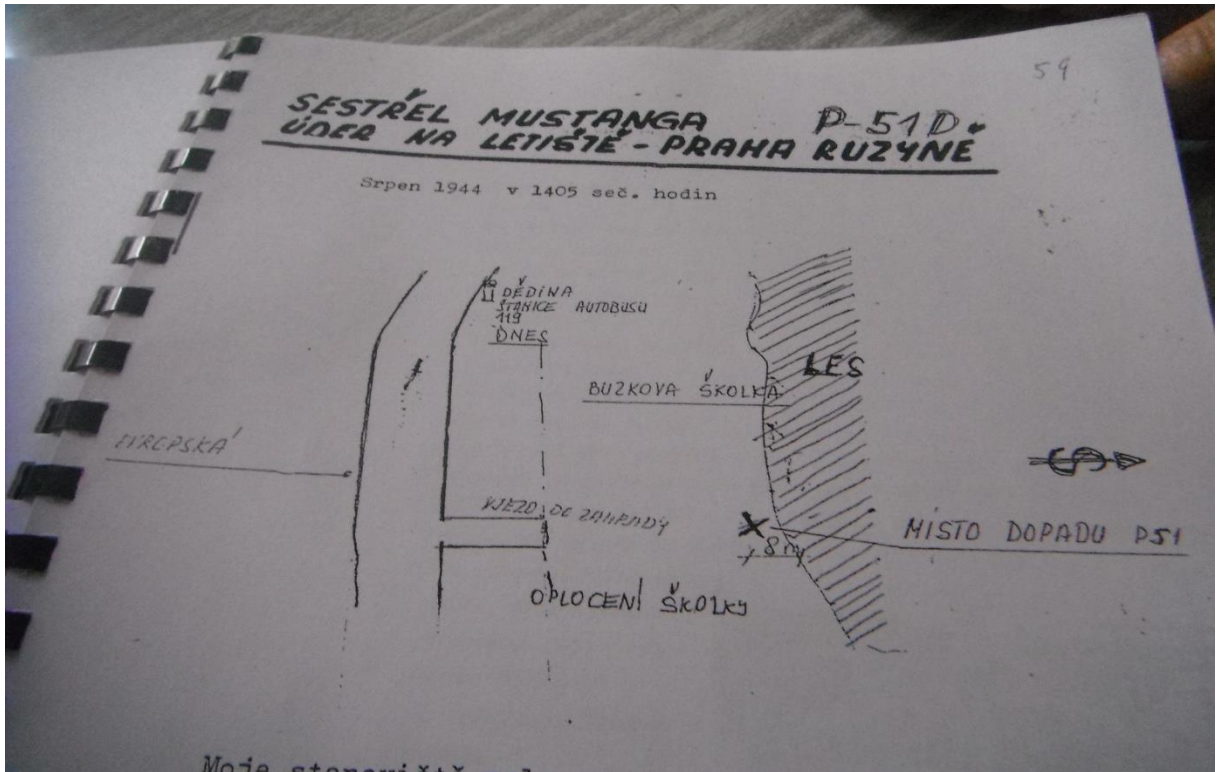 59
SESTŘEL MUSTANGA P-51D.
ÚDER NA LETIŠTĚ - PRAHA RUZYNĚ
Srpen 1944 v 1405 seč. hodin
DĚDINA
STANICE AUTOBUSU
119
DNES
LES
BUZKOVA ŠKOLKA
EVROPSKÁ
VJEZD DO ZAHRADY
MÍSTO DOPADU P51
8 m
OPLOCENÍ ŠKOLKY
Moje stanoviště